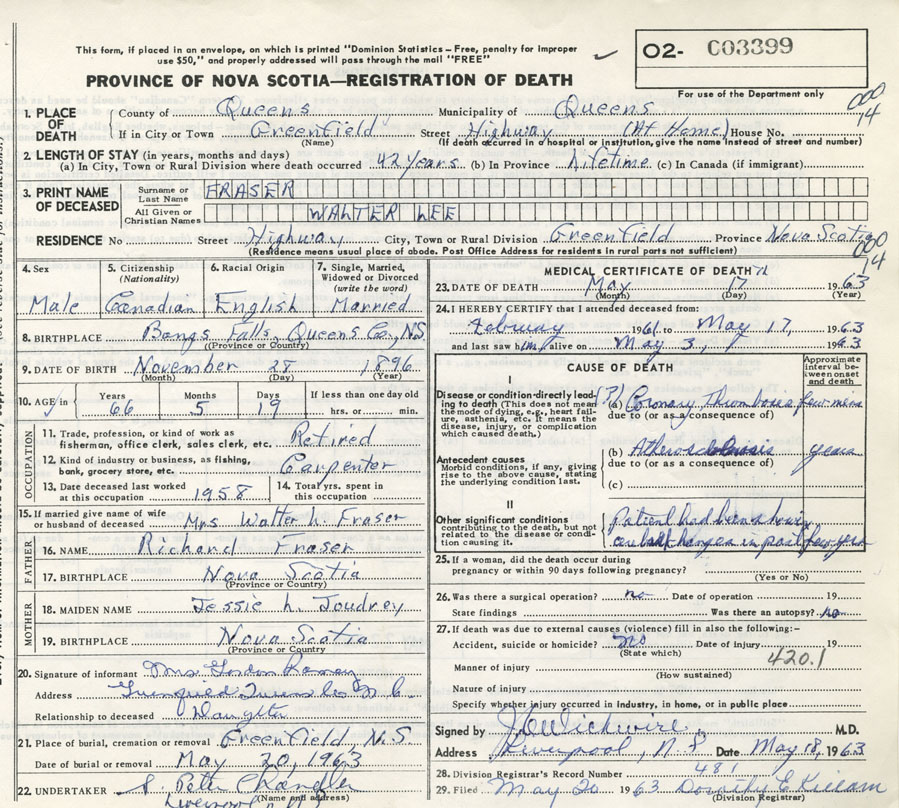 This form, if placed in an envelope, on which is printed "Dominion Statistics – Free, penalty for improper
use $50," and properly addressed will pass through the mail "FREE"
O2- C03399
PROVINCE OF NOVA SCOTIA—REGISTRATION OF DEATH
For use of the Department only
000
14
1. PLACE OF DEATH
County of Queens Municipality of Queens
If in City or Town Greenfield Street Highway (At Home) House No.
(Name) (If death occurred in a hospital or institution, give the name instead of street and number)
2. LENGTH OF STAY (in years, months and days)
(a) In City, Town or Rural Division where death occurred 42 years (b) In Province Lifetime (c) In Canada (if immigrant)
3. PRINT NAME OF DECEASED
Surname or Last Name FRASER
All Given or Christian Names WALTER LEE
RESIDENCE No Street Highway City, Town or Rural Division Greenfield Province Nova Scotia
(Residence means usual place of abode. Post Office Address for residents in rural parts not sufficient)
000
14
4. Sex
Male
5. Citizenship (Nationality)
Canadian
6. Racial Origin
English
7. Single, Married, Widowed or Divorced (write the word)
Married
8. BIRTHPLACE Bangs Falls, Queens Co., N.S.
(Province or Country)
9. DATE OF BIRTH November 28 1896
(Month) (Day) (Year)
10. AGE in Years Months Days If less than one day old
66 5 19 hrs. or min.
OCCUPATION
11. Trade, profession or kind of work as fisherman, office clerk, sales clerk, etc. Retired
12. Kind of industry or business, as fishing, bank, grocery store, etc. Carpenter
13. Date deceased last worked at this occupation 1958
14. Total yrs. spent in this occupation
15. If married give name of wife or husband of deceased Mrs Walter L. Fraser
FATHER
16. NAME Richard Fraser
17. BIRTHPLACE Nova Scotia
(Province or Country)
MOTHER
18. MAIDEN NAME Jessie L. Joudrey
19. BIRTHPLACE Nova Scotia
(Province or Country)
20. Signature of informant Mrs Gordon
Address
Relationship to deceased Daughter
21. Place of burial, cremation or removal Greenfield, N.S
Date of burial or removal May 20, 1963
22. UNDERTAKER S. Peter Chandler
(Name and address)
Liverpool
MEDICAL CERTIFICATE OF DEATH
23. DATE OF DEATH May 17 1963
(Month) (Day) (Year)
24. I HEREBY CERTIFY that I attended deceased from:
February 1961 to May 17, 1963
and last saw him alive on May 3, 1963
CAUSE OF DEATH
Approximate interval between onset and death
I
Disease or condition directly leading to death (This does not mean the mode of dying, e.g., heart failure, asthenia, etc. It means the disease, injury, or complication which caused death.)
(?) (a) Coronary Thrombosis few mins
due to (or as a consequence of)
Antecedent causes
Morbid conditions, if any, giving rise to the above cause, stating the underlying condition last.
(b) years
due to (or as a consequence of)
(c)
II
Other significant conditions
contributing to the death, but not related to the disease or condition causing it.
Patient had been
changes in past few years
25. If a woman, did the death occur during pregnancy or within 90 days following pregnancy?
(Yes or No)
26. Was there a surgical operation? no Date of operation 19
State findings Was there an autopsy? no
27. If death was due to external causes (violence) fill in also the following:-
Accident, suicide or homicide? no Date of injury 19
(State which)
420.1
Manner of injury
(How sustained)
Nature of injury
Specify whether injury occurred in industry, in home, or in public place
Signed by J C Wickwire M.D.
Address Liverpool, N.S. Date May 18, 1963
28. Division Registrar's Record Number 481
29. Filed May 20 1963 Dorothy E Killam
(Division Registrar)